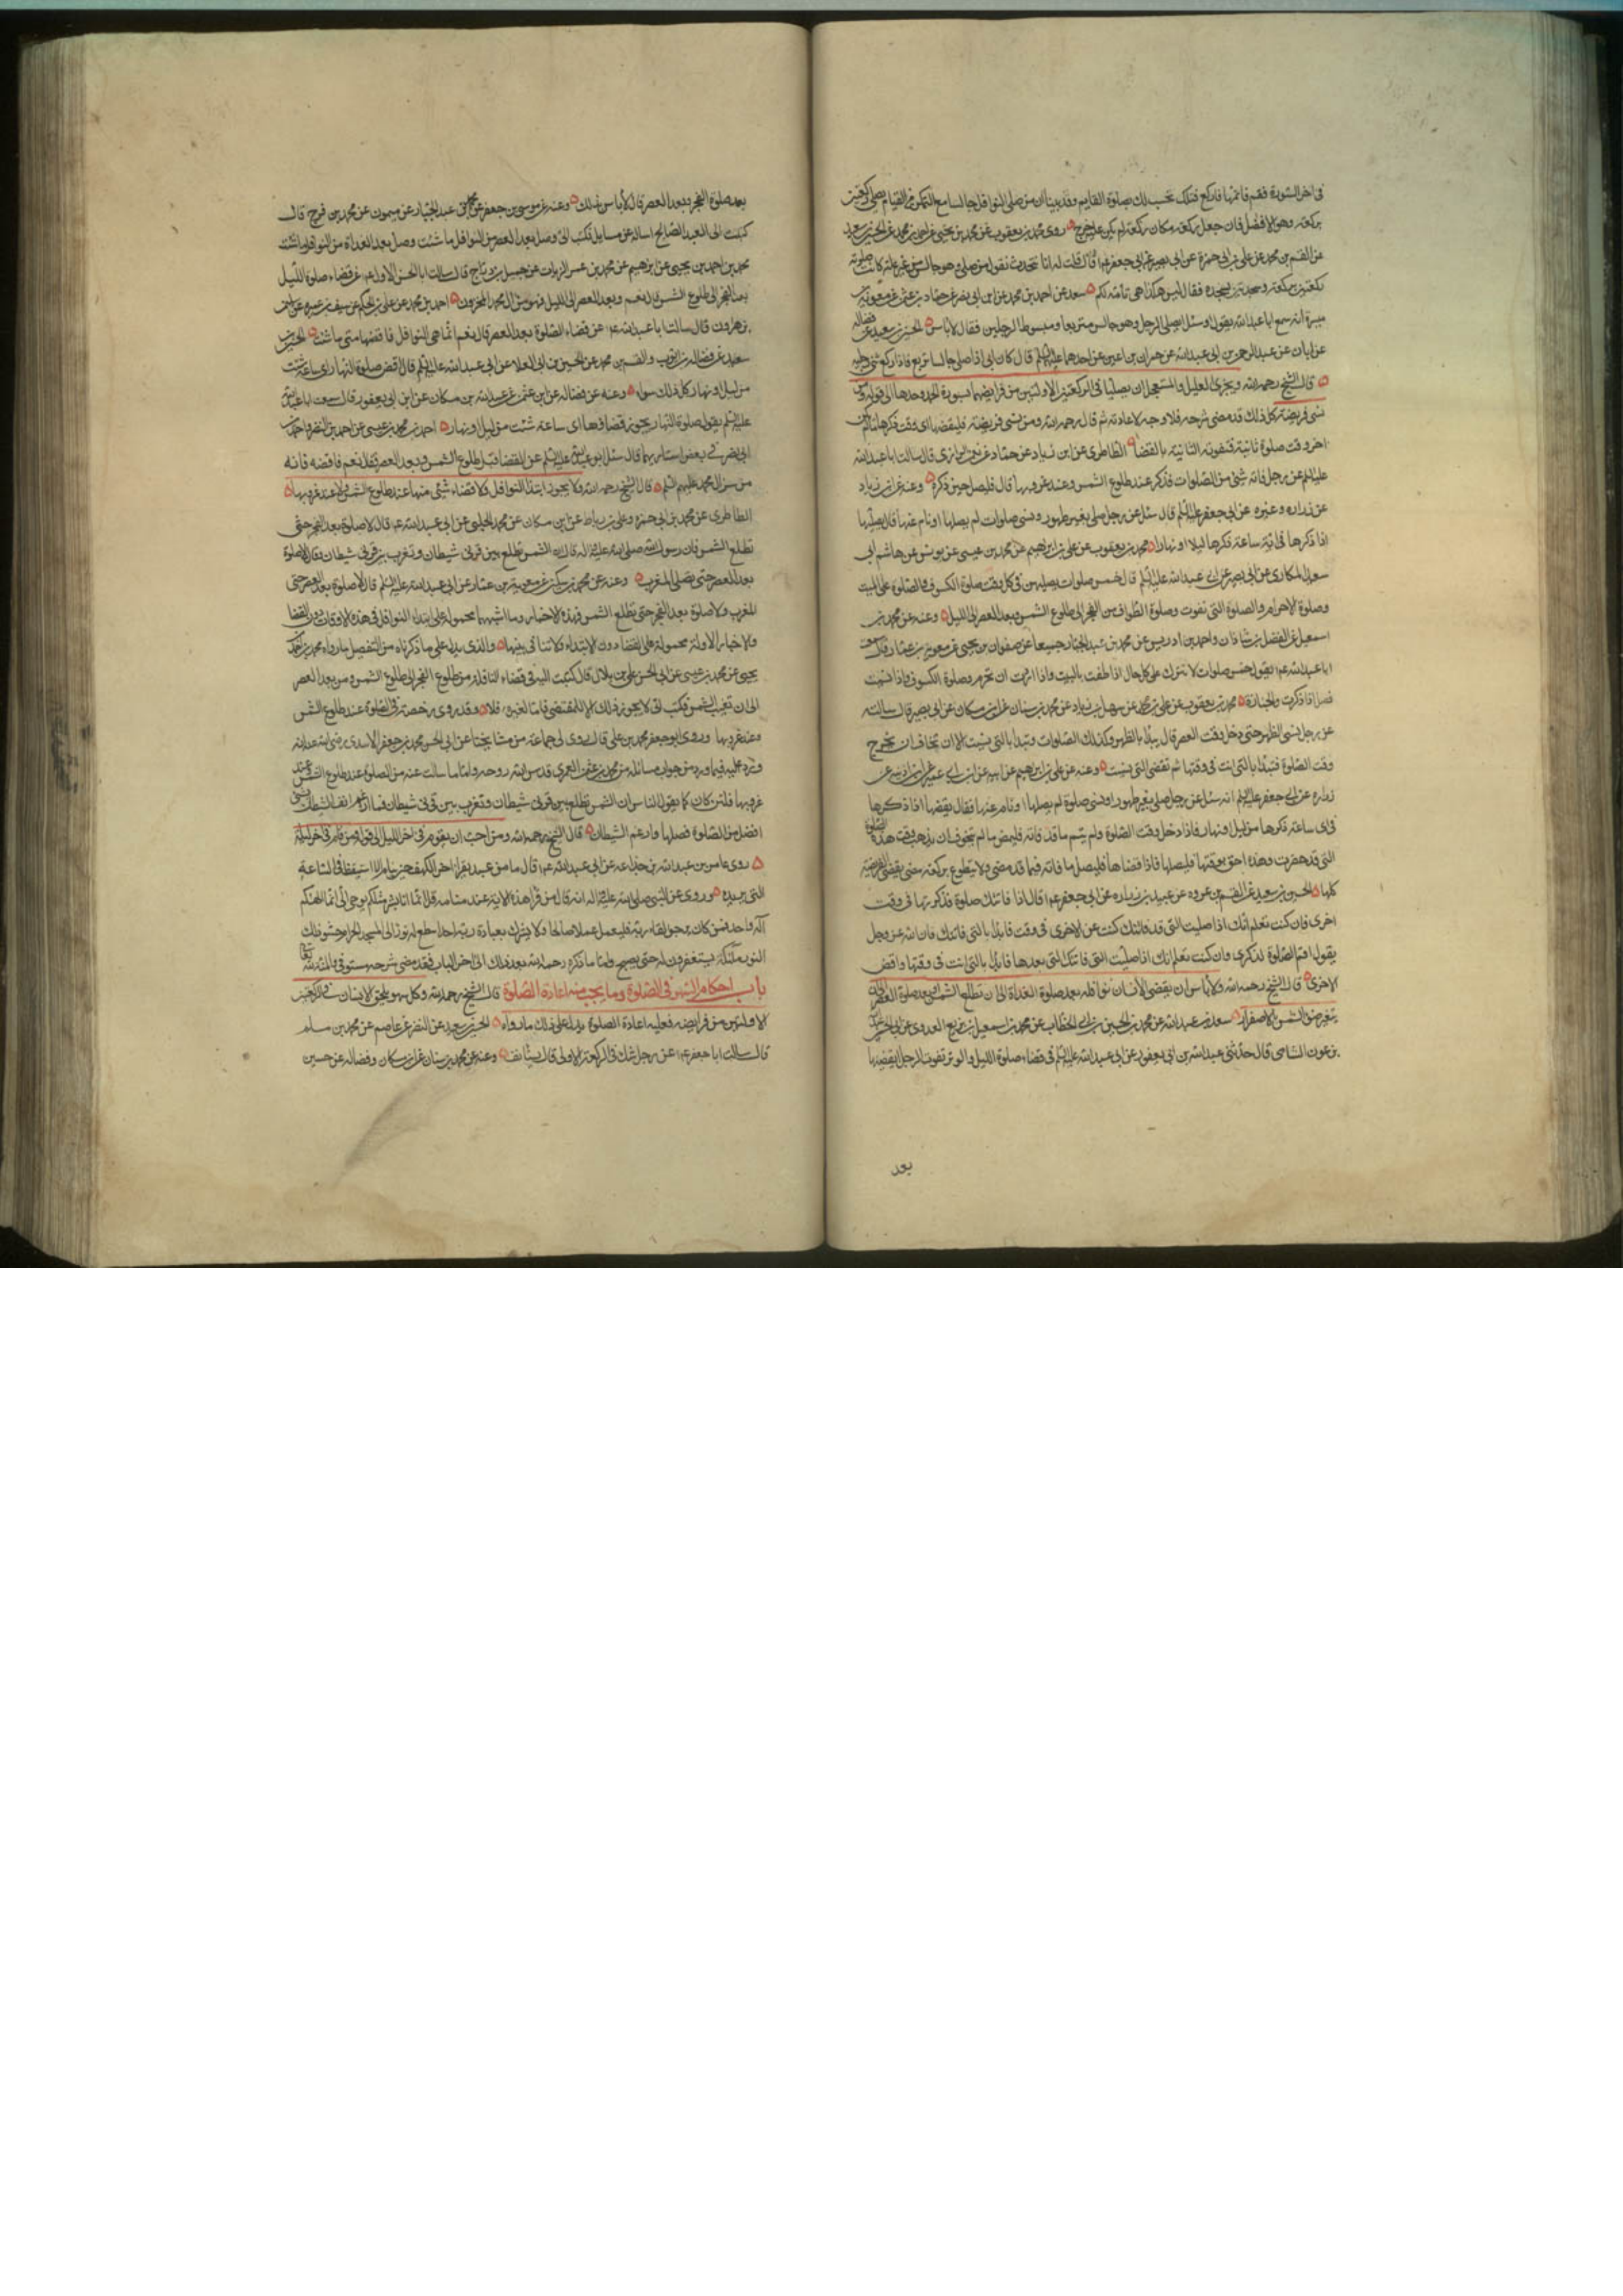 في اخر السورة فقم فاتمها فاركع فتلك تحسب لك بصلوة القايم وقد بينا ان من صلى النوافل جالسا مع التمكن من القيام يصلى ركعتين
بركعة وهو الافضل فان جعل ركعة مكان ركعة لم يكن عليه حرج روى محمد بن يعقوب عن محمد بن يحيى عن احمد بن محمد عن الحسين بن سعيد
عن القسم بن محمد عن علي بن ابي حمزة عن ابي بصير عن ابي جعفر ع قال قلت له انا نتحدث نقول من صلى وهو جالس من غير علة كانت صلوته
ركعتين بركعة وسجدتين بسجدة فقال ليس هكذا هي تامة لكم سعد عن احمد بن محمد عن ابن ابي نصر عن حماد بن عثمن عن معوية بن
ميسرة انه سمع ابا عبد الله يقول وسئل ايصلى الرجل وهو جالس متربعا ومبسوط الرجلين فقال لا باس الحسين بن سعيد عن فضالة
عن ابان عن عبد الرحمن بن ابي عبد الله عن حمران بن اعين عن احدهما عليهما السلم قال كان ابي اذا صلى جالسا تربع فاذا ركع ثنى رجليه
قال الشيخ رحمه الله ويجزى العليل والمستعجل ان يصليا في الركعتين الاولتين من فرايضهما بسورة الحمد وحدها الى قوله ومن
نسي فريضة كل ذلك قد مضى شرحه فلا وجه لاعادته ثم قال رحمه الله ومن نسي فريضة فليقضها اى وقت ذكرها ما لم يكن
اخر وقت صلوة ثانية فتفوته الثانية بالقضا الطاطرى عن ابن زياد عن حماد عن نعمن الرازى قال سالت ابا عبد الله
عليه السلم عن رجل فاته شئ من الصلوات فذكر عند طلوع الشمس وعند غروبها قال فليصل حين ذكره وعنه عن ابن زياد
عن زرارة وغيره عن ابي جعفر عليه السلم قال سئل عن رجل صلى بغير طهور ونسي صلوات لم يصلها او نام عنها قال يصليها
اذا ذكرها في اية ساعة ذكرها ليلا او نهارا محمد بن يعقوب عن علي بن ابرهيم عن محمد بن عيسى عن يونس عن هاشم ابي
سعيد المكارى عن ابي بصير عن ابي عبد الله عليه السلم قال خمس صلوات يصليهن في كل وقت صلوة الكسوف والصلوة على الميت
وصلوة الاحرام والصلوة التي تفوت وصلوة الطواف من الفجر الى طلوع الشمس وبعد العصر الى الليل وعنه عن محمد بن
اسمعيل عن الفضل بن شاذان واحمد بن ادريس عن محمد بن عبد الجبار جميعا عن صفوان بن يحيى عن معوية بن عمار قال سمعت
ابا عبد الله ع يقول خمس صلوات لا تترك على كل حال اذا طفت بالبيت واذا اردت ان تحرم وصلوة الكسوف واذا نسيت
فصل اذا ذكرت والجنازة محمد بن يعقوب عن علي بن محمد عن سهل بن زياد عن محمد بن سنان عن ابن مسكان عن ابي بصير قال سالته
عن رجل نسي الظهر حتى دخل وقت العصر قال يبدأ بالظهر وكذلك الصلوات وتبدأ بالتي نسيت الا ان تخاف ان يخرج
وقت الصلوة فتبدأ بالتي انت في وقتها ثم تقضى التي نسيت وعنه عن علي بن ابرهيم عن ابيه عن ابن ابي عمير عن ابن اذينة عن
زرارة عن ابي جعفر عليه السلم انه سئل عن رجل صلى بغير طهور او نسي صلوة لم يصلها او نام عنها فقال يقضيها اذا ذكرها
في اى ساعة ذكرها من ليل او نهار فاذا دخل وقت الصلوة ولم يتم ما قد فاته فليمض ما لم يتخوف ان يذهب وقت هذه الصلوة
التي قد حضرت وهذه احق بوقتها فليصلها فاذا قضاها فليصل ما فاته فيما قد مضى ولا يتطوع بركعة حتى يقضى الفريضة
كلها الحسين بن سعيد عن القسم بن عروة عن عبيد بن زرارة عن ابي جعفر ع قال اذا فاتتك صلوة فذكرتها في وقت
اخرى فان كنت تعلم انك اذا صليت التي قد فاتتك كنت من الاخرى في وقت فابدأ بالتي فاتتك فان الله عز وجل
يقول اقم الصلوة لذكرى وان كنت تعلم انك اذا صليت التي فاتتك التي بعدها فابدأ بالتي انت في وقتها واقض
الاخرى قال الشيخ رحمه الله ولا باس ان يقضى الانسان نوافله بعد صلوة الغداة الى ان تطلع الشمس وبعد صلوة العصر الى ان
يتغير ضوء الشمس بالاصفرار سعد بن عبد الله عن محمد بن الحسين بن ابي الخطاب عن محمد بن اسمعيل بن بزيع العدوى عن ابي الحسن علي
بن عون الشامى قال حدثني عبد الله بن ابي يعفور عن ابي عبد الله عليه السلم في قضاء صلوة الليل والوتر تفوت الرجل ايقضيها
بعد
بعد صلوة الفجر وبعد العصر قال لا باس بذلك وعنه عن موسى بن جعفر عن محمد بن عبد الجبار عن ميمون عن محمد بن فرج قال
كتبت الى العبد الصالح اساله عن مسايل فكتب الى وصل بعد العصر من النوافل ما شئت وصل بعد الغداة من النوافل ما شئت
محمد بن احمد بن يحيى عن ابرهيم عن محمد بن عمر الزيات عن جميل بن دراج قال سالت ابا الحسن الاول ع عن قضاء صلوة الليل
بعد الفجر الى طلوع الشمس قال نعم وبعد العصر الى الليل فهو من سر آل محمد المخزون احمد بن محمد عن علي بن الحكم عن سيف بن عميرة عن
بن هرون قال سالت ابا عبد الله ع عن قضاء الصلوة بعد العصر قال نعم انما هي النوافل فاقضها متى ما شئت الحسين بن
سعيد عن فضالة بن ايوب والقسم بن محمد عن الحسين بن ابي العلا عن ابي عبد الله عليه السلم قال اقض صلوة النهار اى ساعة شئت
من ليل او نهار كل ذلك سواء وعنه عن فضالة عن ابن عثمن عن عبد الله بن مسكان عن ابن ابي يعفور قال سمعت ابا عبد الله
عليه السلم يقول صلوة النهار يجوز قضاؤها اى ساعة شئت من ليل او نهار احمد بن محمد بن عيسى عن احمد بن النضر واحمد بن
ابي نصر في بعض اسناديهما قال سئل ابو عبد الله عليه السلم عن القضا قبل طلوع الشمس وبعد العصر فقال نعم فاقضه فانه
من سر آل محمد عليهم السلم قال الشيخ رحمه الله ولا يجوز ابتدأ النوافل ولا قضاء شئ منها عند طلوع الشمس ولا عند غروبها
الطاطرى عن محمد بن ابي حمزة وعلى بن رباط عن ابن مسكان عن محمد الحلبي عن ابي عبد الله ع قال لا صلوة بعد الفجر حتى
تطلع الشمس فان رسول الله صلى الله عليه واله قال ان الشمس تطلع بين قرنى شيطان وتغرب بين قرنى شيطان وقال لا صلوة
بعد العصر حتى يصلى المغرب وعنه عن محمد بن سكين عن معوية بن عمار عن ابي عبد الله عليه السلم قال لا صلوة بعد العصر حتى
المغرب ولا صلوة بعد الفجر حتى تطلع الشمس فهذه الاخبار وما اشبهها محمولة على ابتدأ النوافل في هذه الاوقات دون القضا
والاخبار الاولة محمولة على القضاء دون الابتداء ولا تنافى بينها والذى يدل على ما ذكرناه من التفصيل ما رواه محمد بن احمد بن
يحيى عن محمد بن عيسى عن ابي الحسن علي بن بلال قال كتبت اليه في قضاء النافلة من طلوع الفجر الى طلوع الشمس ومن بعد العصر
الى ان تغيب الشمس فكتب الى لا يجوز ذلك الا للمقتضى فاما لغيره فلا وقد روى رخصة في الصلوة عند طلوع الشمس
وعند غروبها وروى ابو جعفر محمد بن علي قال روى لى جماعة من مشايخنا عن ابي الحسين محمد بن جعفر الاسدى رضى الله عنه انه
ورد عليه فيما ورد من جواب مسائله من محمد بن عثمن العمرى قدس الله روحه واما ما سالت عنه من الصلوة عند طلوع الشمس وعند
غروبها فلئن كان كما يقول الناس ان الشمس تطلع بين قرنى شيطان وتغرب بين قرنى شيطان فما ارغم انف الشيطان بشئ
افضل من الصلوة فصلها وارغم الشيطان قال الشيخ رحمه الله ومن احب ان يقوم في اخر الليل الى قوله ومن قام في اخر ليلة
روى عامر بن عبد الله بن جذاعة عن ابي عبد الله ع قال ما من عبد يقرأ اخر الكهف حين ينام الا استيقظ في الساعة
التي يريد وروى عن النبي صلى الله عليه واله انه قال من قرأ هذه الاية عند منامه قل انما انا بشر مثلكم يوحى الى انما الهكم
اله واحد فمن كان يرجو لقاء ربه فليعمل عملا صالحا ولا يشرك بعبادة ربه احدا سطع له نور الى المسجد الحرام حشو ذلك
النور ملئكة يستغفرون له حتى يصبح واما ما ذكره رحمه الله بعد ذلك الى اخر الباب فقد مضى شرحه مستوفى والمنة لله تعا
باب احكام السهو في الصلوة وما يجب منه اعادة الصلوة قال الشيخ رحمه الله وكل سهو يلحق الانسان في الركعتين
الاولتين من فرايضه فعليه اعادة الصلوة يدل على ذلك ما رواه الحسين بن سعيد عن النضر عن عاصم عن محمد بن مسلم
قال سالت ابا جعفر ع عن رجل شك في الركعة الاولى قال يستانف وعنه عن محمد بن سنان عن ابن مسكان وفضالة عن حسين